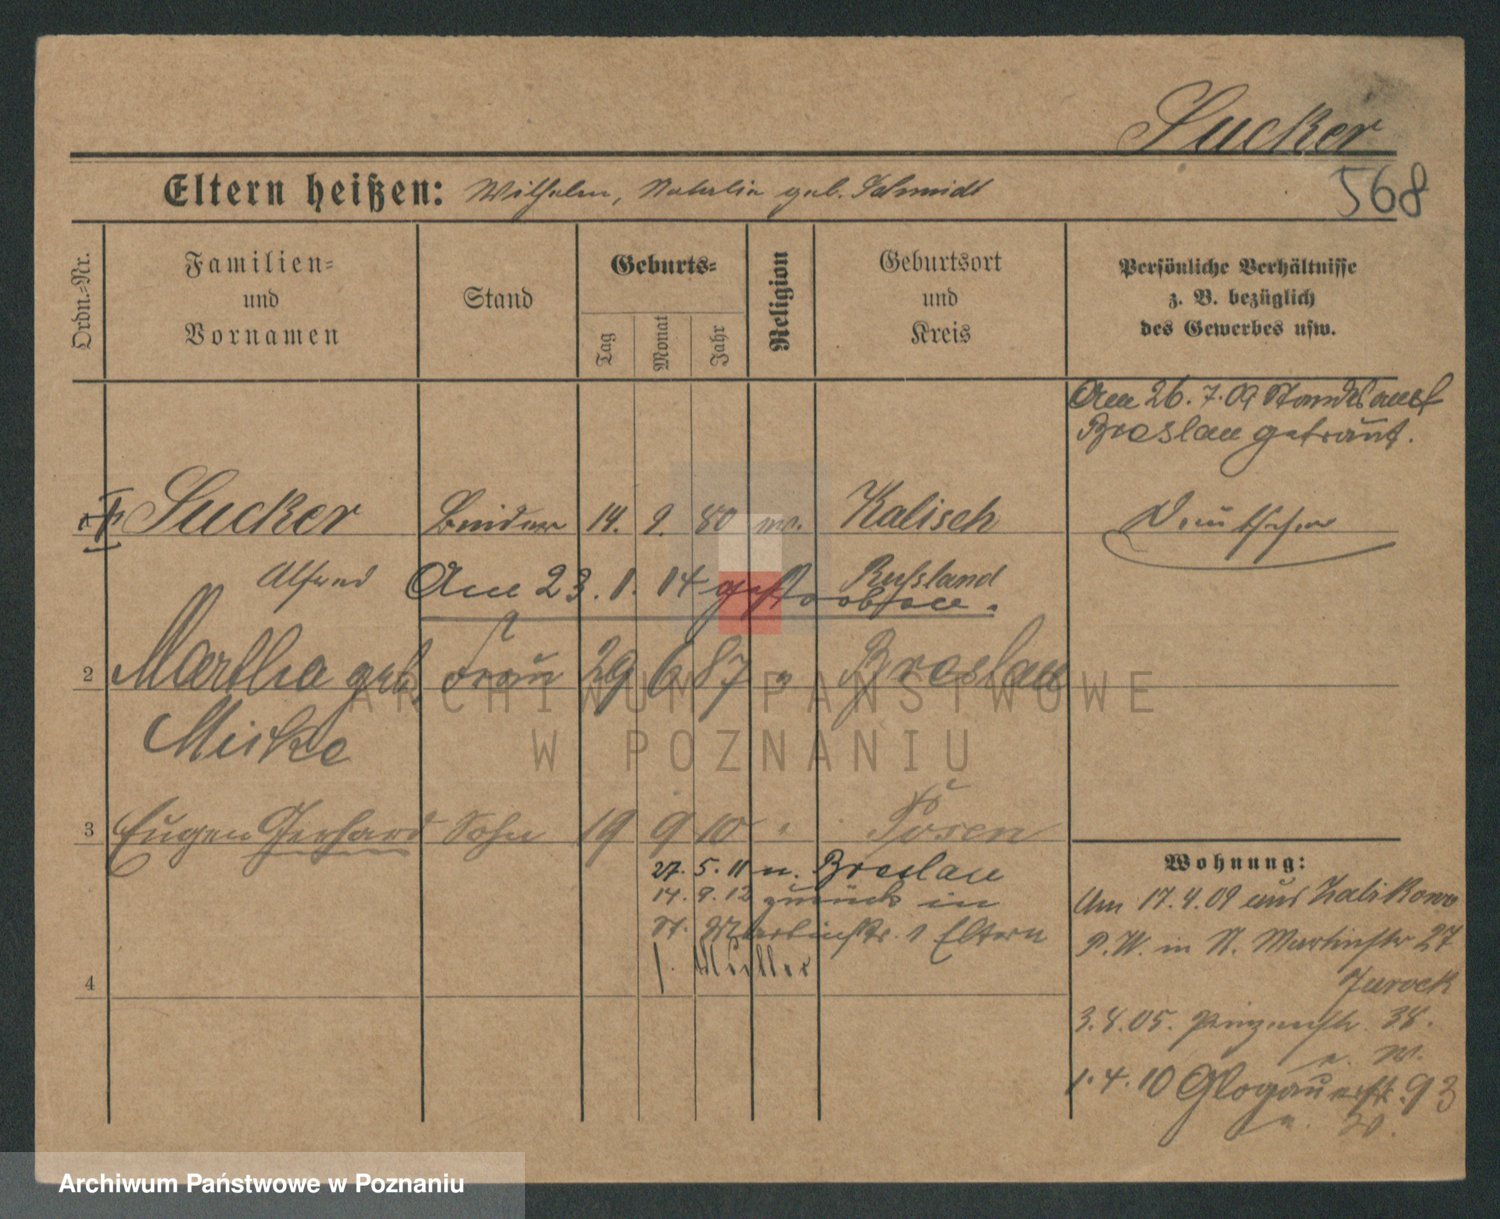 Sucker
Eltern heißen: Wilhelm, Nathalia geb. Schmidt
568
Ordn.-Nr.
Familien-
und
Vornamen
Stand
Geburts-
Tag
Monat
Jahr
Religion
Geburtsort
und
Kreis
Persönliche Verhältnisse
z. B. bezüglich
des Gewerbes usw.
Am 26.7.09 Standesamt
Breslau getraut.
Sucker 14. 9. 80 Kalisch
Alfred Russland
Am 23.1.14 gestorben.
2 Martha geb. Frau 29 6 87 " Breslau
Mirke
3 Eugen Gerhard Sohn 19 9 10 " Posen
27.5.11 n. Breslau
14.9.12 zurück in
St. Martinstr. Eltern
Müller
4
Wohnung:
Am 17.4.09 aus
P.W. in St. Martinstr 27
38.
1.4.10 Glogauerstr. 93
ARCHIWUM PAŃSTWOWE
W POZNANIU
Archiwum Państwowe w Poznaniu